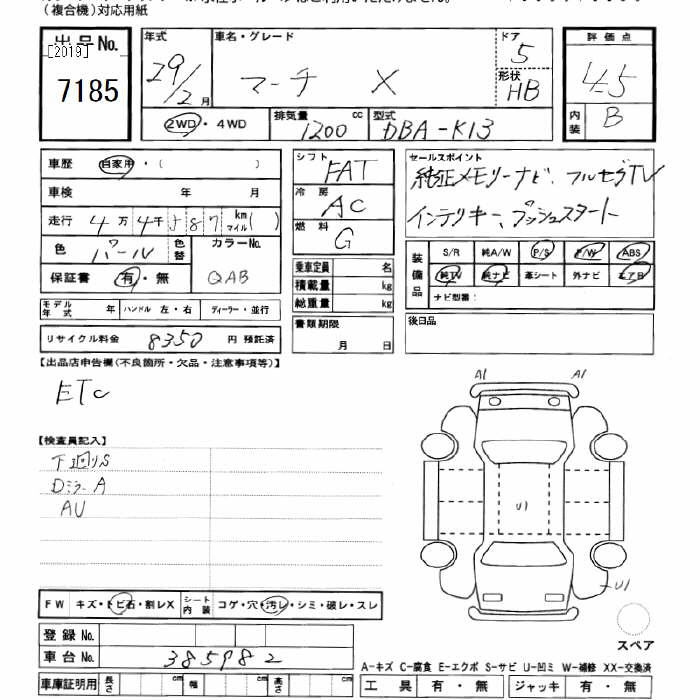 (複合機)対応用紙
出品No.
[2019]
7185
年式
29/2月
車名・グレード
マーチ X
ドア
5
形状
HB
評価点
4.5
内装
B
2WD・4WD
排気量
1200 cc
型式
DBA-K13
車歴 自家用・( )
車検 年 月
走行 4万4千587 km マイル( )
色 パール
色替
カラーNo.
QAB
保証書 有・無
モデル年式 年 ハンドル 左・右 ディーラー・並行
リサイクル料金 8350 円 預託済
シフト
FAT
冷房
AC
燃料
G
乗車定員 名
積載量 kg
総重量 kg
書類期限
月 日
セールスポイント
純正メモリーナビ、フルセグTV
インテリキー、プッシュスタート
装備品
S/R 純A/W P/S P/W ABS
純TV 純ナビ 革シート 外ナビ エアB
ナビ型番:
後日品
【出品店申告欄(不良箇所・欠品・注意事項等)】
ETC
【検査員記入】
下回りS
Dミラー A
AU
A1
A1
U1
U1
スペア
FW キズ・トビ石・割レX
シート内装 コゲ・穴・汚レ・シミ・破レ・スレ
登録No.
車台No. 385982
車庫証明用 長さ cm 幅 cm 高さ cm
A-キズ C-腐食 E-エクボ S-サビ U-凹ミ W-補修 XX-交換済
工具 有・無 ジャッキ 有・無